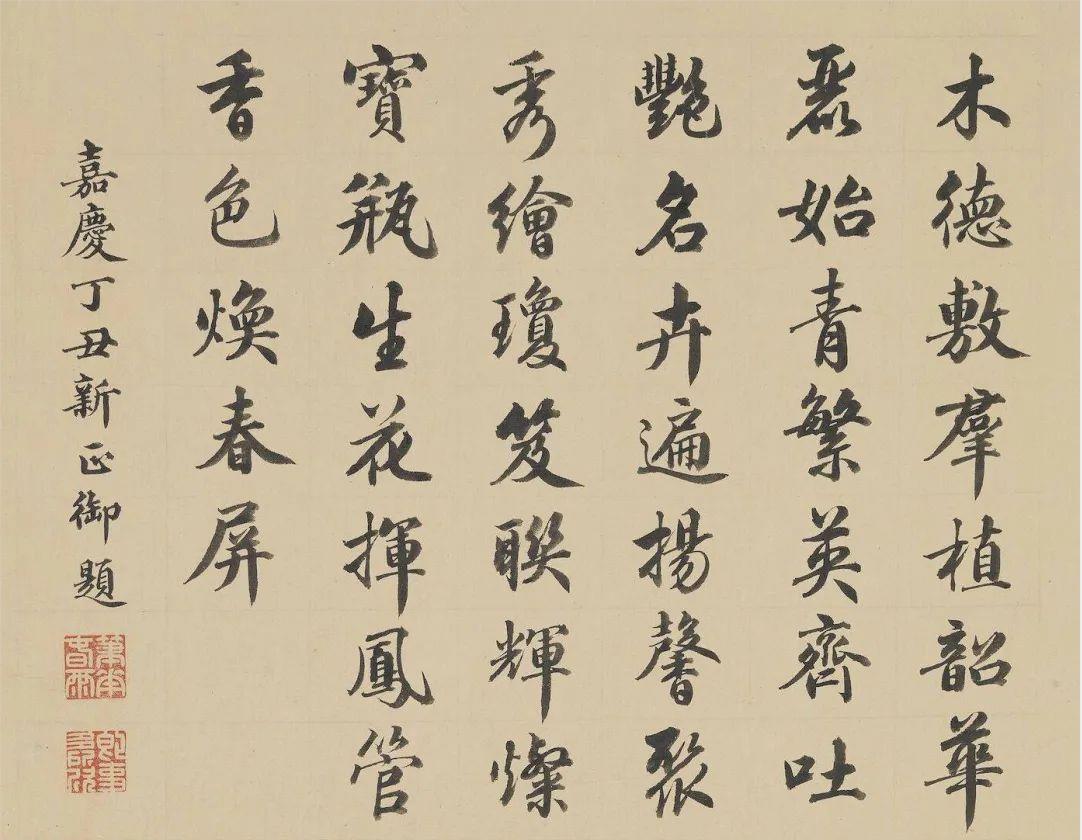 木德敷羣植韶華
麗始青繁英齊吐
艷名卉遍揚馨聚
秀繪瓊笈聯輝燦
寶瓶生花揮鳳管
香色煥春屏
嘉慶丁丑新正御題
即事多所欣